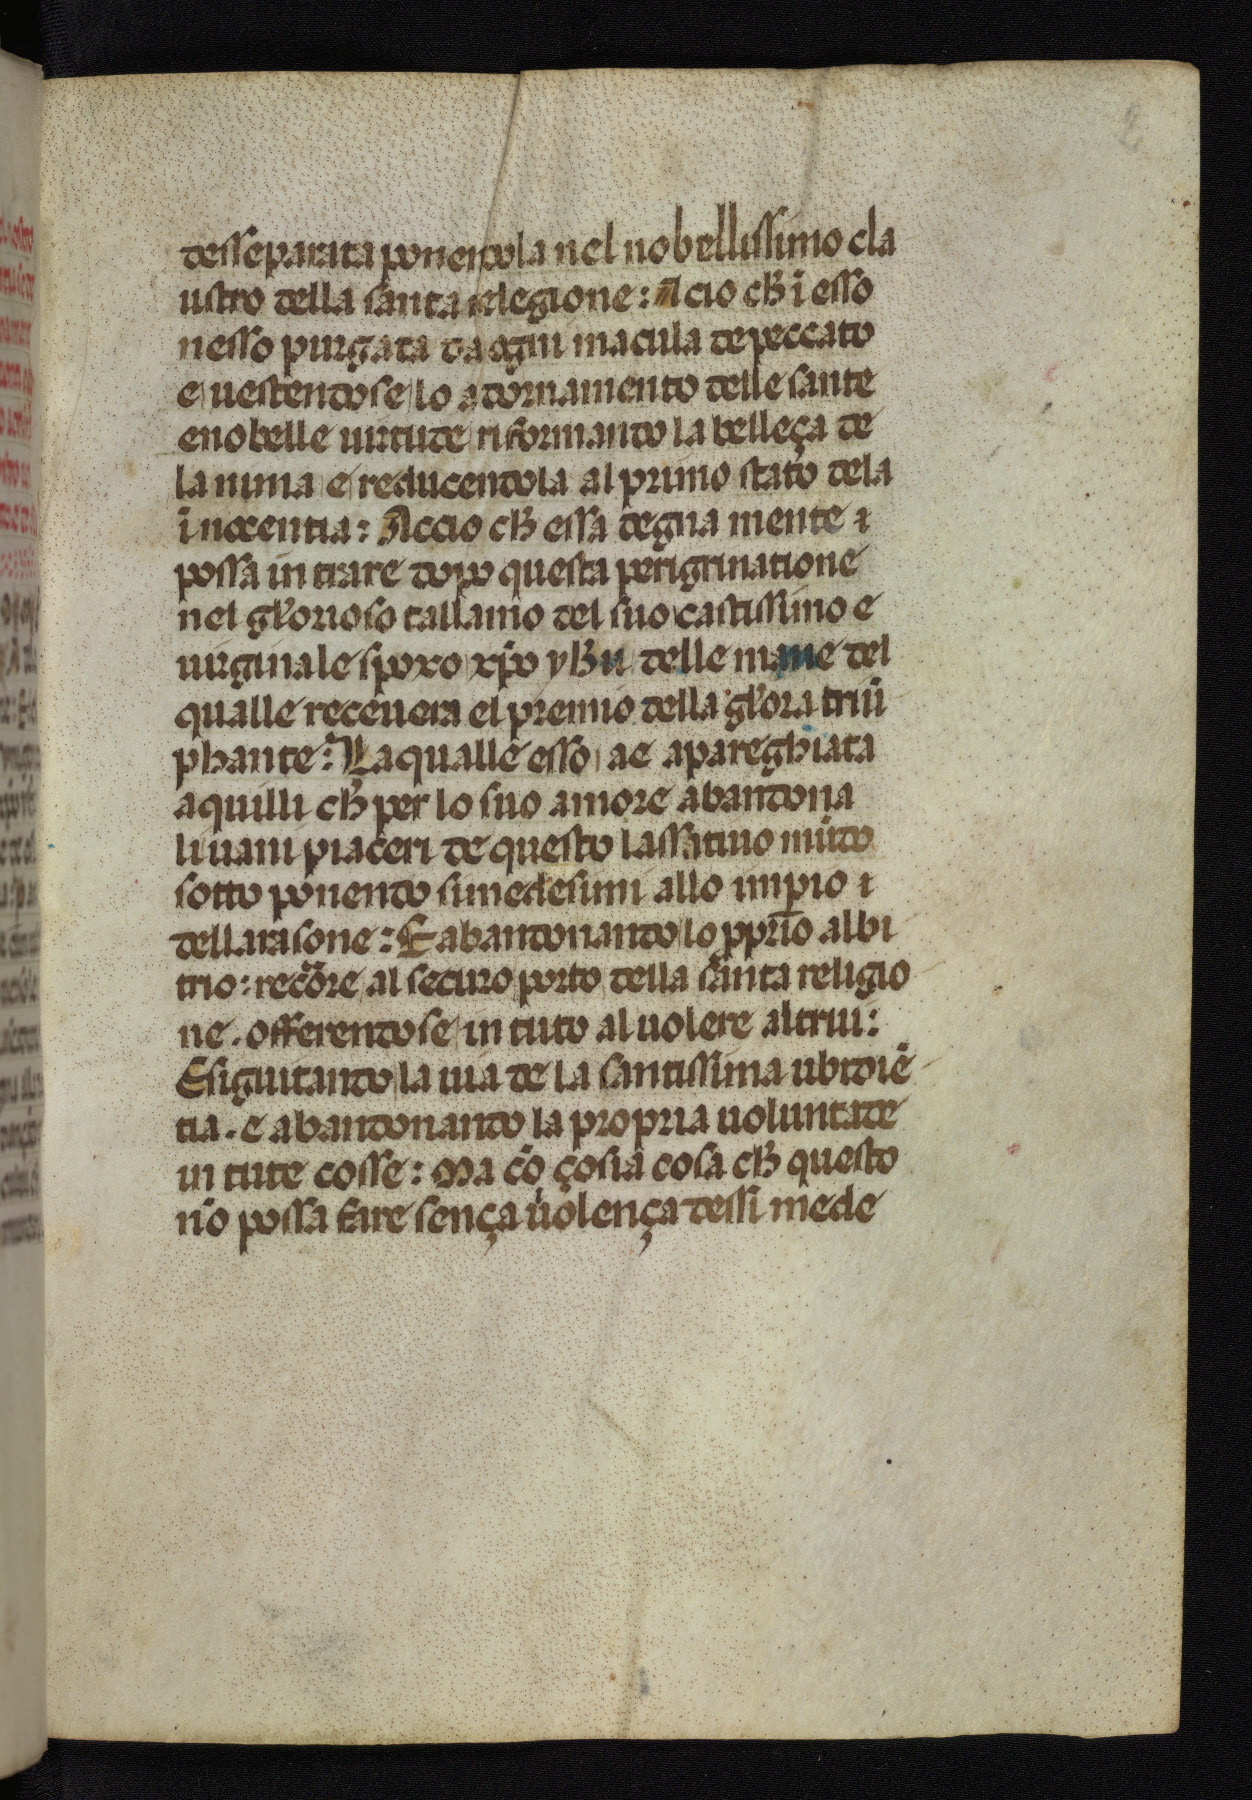 desseparata ponendola nel nobellissimo cla
ustro della santa relegione: Acio ch ī esso
nesso purgata da ogni macula de peccato
e uestendose lo adornamento delle sante
e nobelle uirtute riformando la belleça de
lanima e reducendola al primo stato dela
īnocentia: Accio ch essa degna mente ⁊
possa intrare dopo questa perigrinatione
nel glorioso tallamo del suo castissimo e
uirginale sposo xp̄o yhu delle mane del
qualle receuera el premio della gloria triū
phante: La qualle esso ae apareghiata
aquilli ch per lo suo amore abandona
li uani piaceri de questo lassatiuo mūdo
sotto ponendo simedesimi allo imperio ⁊
della rasone: E abandonando lo pprio albi
trio: recōre al securo porto della santa religio
ne. offerendose in tuto al uolere altrui:
E siguitando la uia de la santissima ubidiē
tia. e abandonando la propria uoluntate
in tute cosse: Ma cō çosia cosa ch questo
nō possa fare sença uiolença dessi mede
2